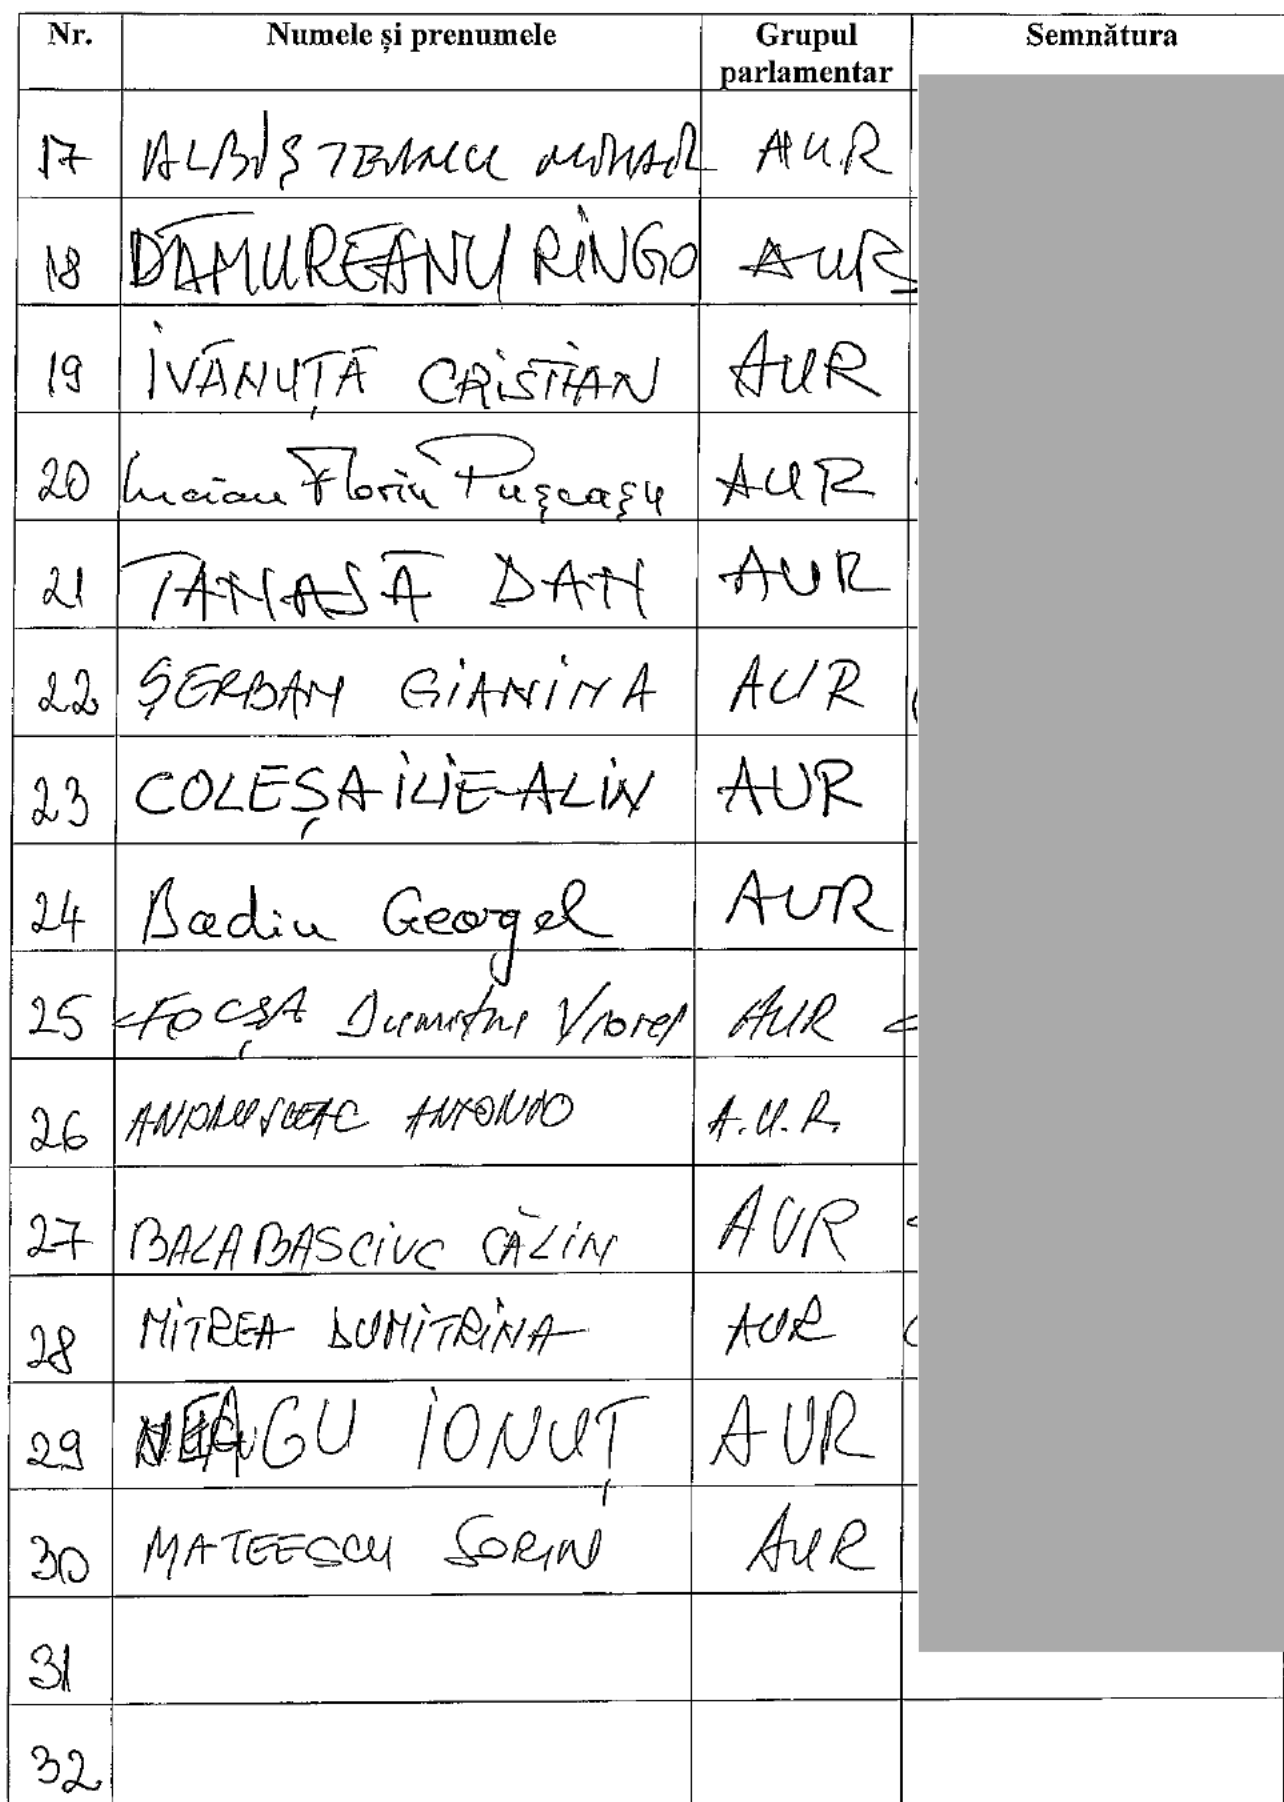 Nr. Numele și prenumele Grupul parlamentar Semnătura
17 ALBIȘTEANU MIHAIL AUR
18 DĂMUREANU RINGO AUR
19 IVĂNUȚĂ CRISTIAN AUR
20 Lucian Florin Pușcașu AUR
21 TANASĂ DAN AUR
22 ȘERBAN GIANINA AUR
23 COLEȘA ILIE-ALIN AUR
24 Badiu Georgel AUR
25 FOCȘA Dumitru Viorel AUR
26 ANDRUSCEAC ANTONIO A.U.R.
27 BALABASCIUC CĂLIN AUR
28 MITREA DUMITRINA AUR
29 NEAGU IONUȚ AUR
30 MATEESCU SORIN AUR
31
32